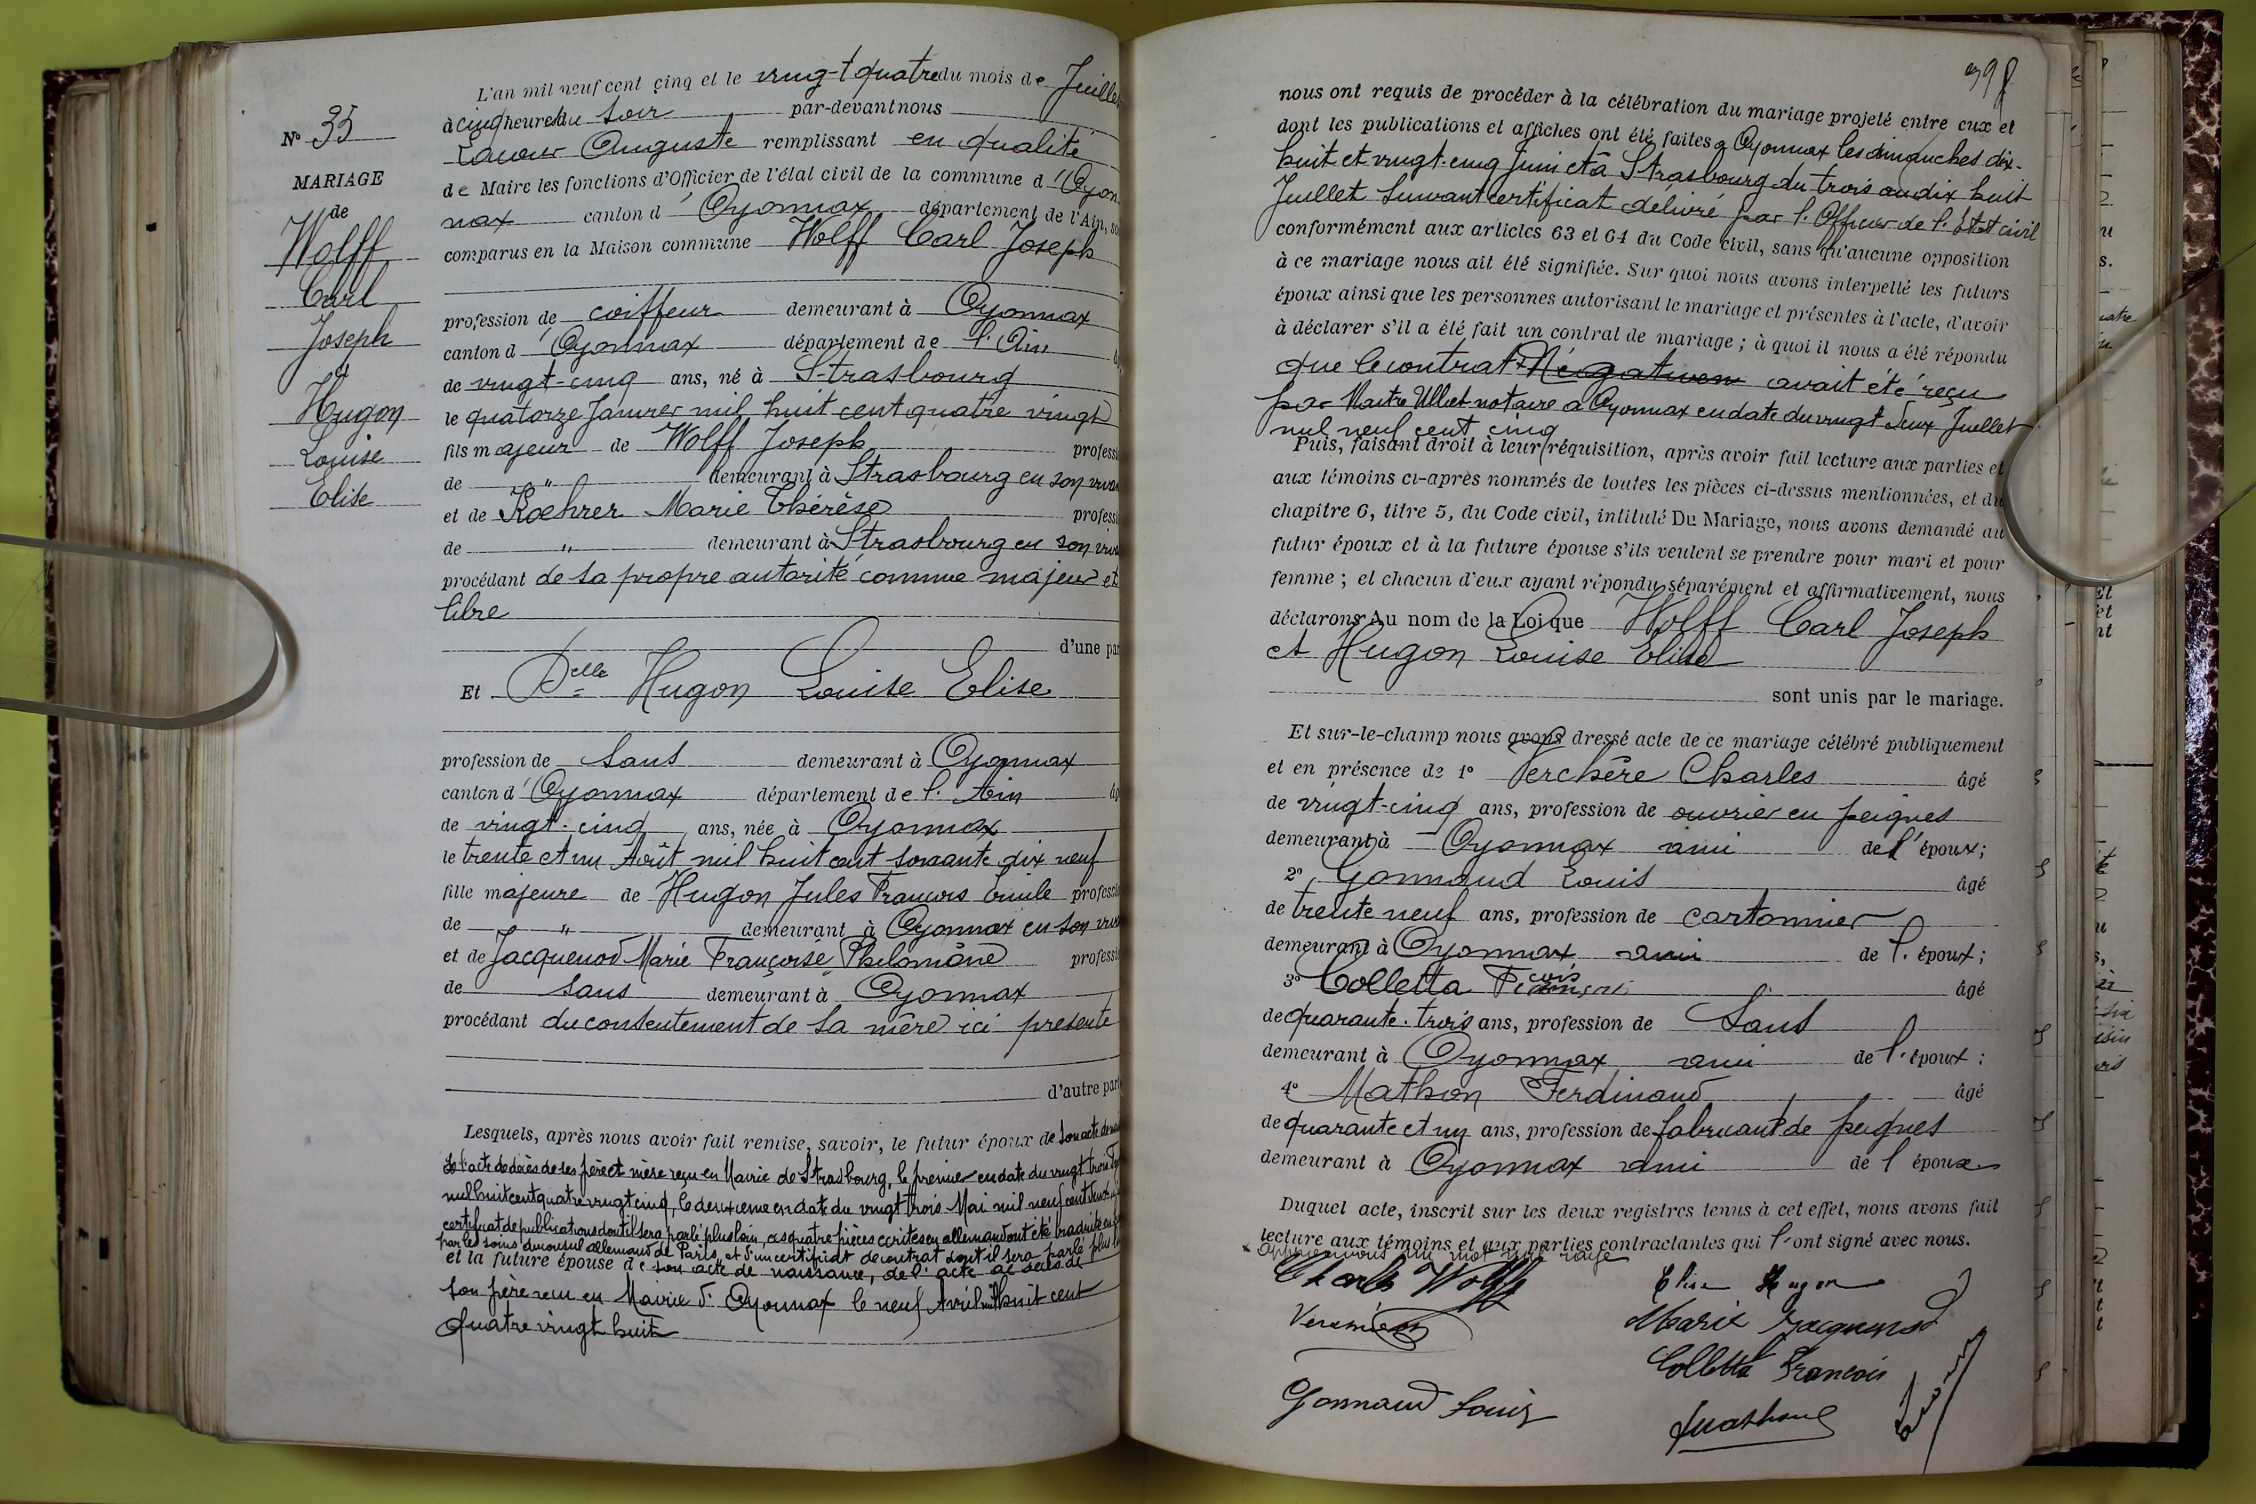 L'an mil neuf cent cinq et le vingt quatre du mois de Juillet
à cinq heures du soir par-devant nous
Auguste remplissant en qualité
de Maire les fonctions d'Officier de l'état civil de la commune d'Oyon
nax canton d'Oyonnax département de l'Ain, so
comparus en la Maison commune Wolff Carl Joseph
profession de coiffeur demeurant à Oyonnax
canton d'Oyonnax département de l'Ain
de vingt-cinq ans, né à Strasbourg
le quatorze Janvier mil huit cent quatre vingt
fils majeur de Wolff Joseph professi
de " demeurant à Strasbourg en son viva
et de Roehrer Marie Thérèse professi
de " demeurant à Strasbourg en son viva
procédant de sa propre autorité comme majeur et
libre
d'une par
Et Delle Hugon Louise Elise
profession de sans demeurant à Oyonnax
canton d'Oyonnax département de l'Ain âg
de vingt-cinq ans, née à Oyonnax
le trente et un Août mil huit cent soixante dix neuf
fille majeure de Hugon Jules François Emile professio
de " demeurant à Oyonnax en son viva
et de Jacquenod Marie Françoise Philomène professi
de sans demeurant à Oyonnax
procédant du consentement de sa mère ici présente
d'autre part
Lesquels, après nous avoir fait remise, savoir, le futur époux de son acte de
de l'acte de décès de ses père et mère reçu en Mairie de Strasbourg, le premier en date du vingt trois
mil huit cent quatre vingt cinq, le deuxième en date du vingt trois Mai mil neuf cent deux
certificat de publications dont il sera parlé plus loin, ces quatre pièces écrites en allemand ont été traduites en
par les soins du consul allemand de Paris, et d'un certificat de contrat dont il sera parlé plus
et la future épouse de son acte de naissance, de l'acte de décès de
son père reçu en Mairie d'Oyonnax le neuf Avril mil huit cent
quatre vingt huit
N° 35
MARIAGE
de
Wolff
Carl
Joseph
Hugon
Louise
Elise
398
nous ont requis de procéder à la célébration du mariage projeté entre eux et
dont les publications et affiches ont été faites à Oyonnax les dimanches dix-
huit et vingt-cinq Juin et à Strasbourg du trois au dix huit
Juillet suivant certificat délivré par l'Officier de l'état civil
conformément aux articles 63 et 64 du Code civil, sans qu'aucune opposition
à ce mariage nous ait été signifiée. Sur quoi nous avons interpellé les futurs
époux ainsi que les personnes autorisant le mariage et présentes à l'acte, d'avoir
à déclarer s'il a été fait un contrat de mariage ; à quoi il nous a été répondu
que le contrat Négativem avait été reçu
par Maitre notaire à Oyonnax en date du vingt deux Juillet
mil neuf cent cinq
Puis, faisant droit à leur réquisition, après avoir fait lecture aux parties et
aux témoins ci-après nommés de toutes les pièces ci-dessus mentionnées, et du
chapitre 6, titre 5, du Code civil, intitulé Du Mariage, nous avons demandé au
futur époux et à la future épouse s'ils veulent se prendre pour mari et pour
femme ; et chacun d'eux ayant répondu séparément et affirmativement, nous
déclarons Au nom de la Loi que Wolff Carl Joseph
et Hugon Louise Elise
sont unis par le mariage.
Et sur-le-champ nous avons dressé acte de ce mariage célébré publiquement
et en présence de 1° Verchère Charles âgé
de vingt-cinq ans, profession de ouvrier en peignes
demeurant à Oyonnax ami de l'époux;
2° Gonnaud Louis âgé
de trente neuf ans, profession de cartonnier
demeurant à Oyonnax ami de l'époux;
3° Colletta âgé
de quarante-trois ans, profession de Sans
demeurant à Oyonnax ami de l'époux;
4° Mathon Ferdinand âgé
de quarante et un ans, profession de fabricant de peignes
demeurant à Oyonnax ami de l'époux
Duquel acte, inscrit sur les deux registres tenus à cet effet, nous avons fait
lecture aux témoins et aux parties contractantes qui l'ont signé avec nous.
un mot rayé
Charles Wolff
Elise Hugon
Marie Jacquenod
Colletta François
Gonnaud Louis
Mathon